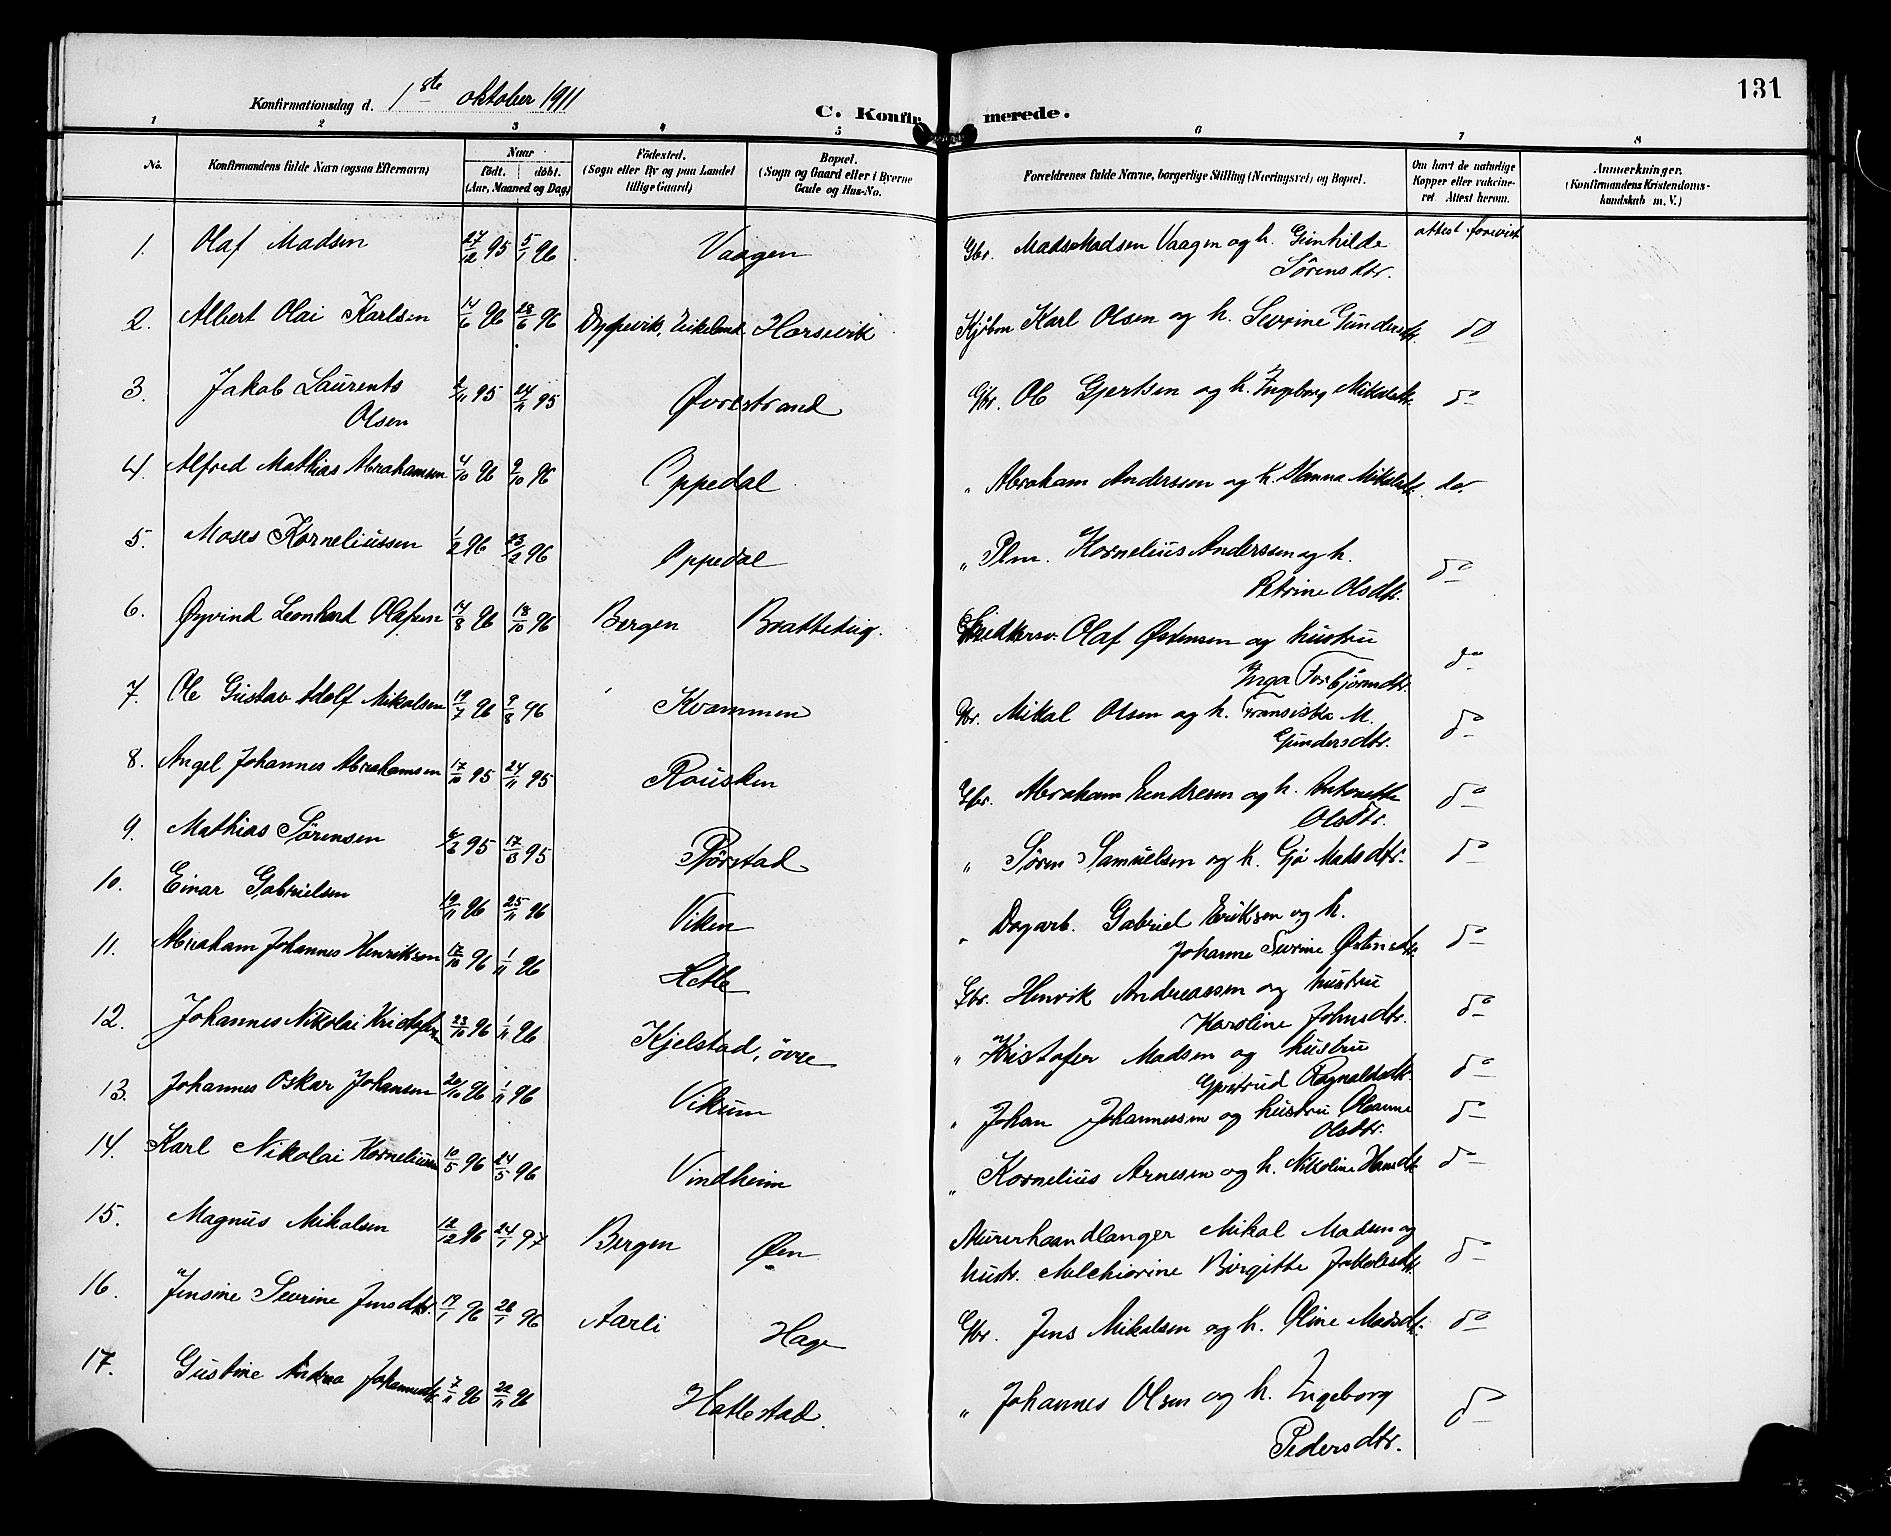 131
Konfirmationsdag d. 1ste oktober 1911
C. Konfirmerede.
1 2 3 4 5 6 7 8
No. Konfirmandens fulde Navn (ogsaa Efternavn) Naar født. døbt. (Aar, Maaned og Dag) Fødested. (Sogn eller By og paa Landet tillige Gaard) Bopæl. (Sogn og Gaard eller i Byerne Gade og Hus-No. Forældrenes fulde Navne, borgerlige Stilling (Næringsvei) og Bopæl. Om havt de naturlige Kopper eller vaksineret Attest herom. Anmærkninger. (Konfirmandens Kristendomskundskab m. V.)
1. Olaf Madsen 27/12 95 5/1 96 Vaagen Gbr. Mads Madsen Vaagen og h. Gunhilde Sørensdtr. attest forevist
2. Albert Olai Karlsen 14/6 96 28/6 96 Dyppevik, Eikeland Horsevik Kjøbm Karl Olsen og h. Sevrine Gundersdtr. do
3. Jakob Laurents Olsen 2/11 95 24/11 95 Øvrestrand Gbr. Ole Gjertsen og h. Ingeborg Mikalsdtr. do
4. Alfred Mathias Abrahamsen 4/10 96 9/10 96 Oppedal " Abraham Anderssen og h. Hanna Mikalsdtr. do.
5. Moses Korneliussen 1/2 96 23/2 96 Oppedal " Plm. Kornelius Anderssen og h. Petrine Olsdtr. do
6. Øyvind Leonhard Olafsen 14/8 96 18/10 96 Bergen Bratteteig. Snedkersv. Olaf Østensen og hustru Inga Torbjørnsdtr. do
7. Ole Gustav Adolf Mikalsen 19/7 96 9/8 96 Kvammen Gbr. Mikal Olsen og h. Fransiska M. Gundersdtr. do
8. Angel Johannes Abrahamsen 17/10 95 24/11 95 Rousken Gbr. Abraham Endresen og h. Antonette Olsdtr. do
9. Mathias Sørensen 95 17/3 95 Rørstad " Søren Samuelsen og h. Gjø Madsdtr. do
10. Einar Gabrielsen 19/11 96 25/11 96 Viken " Dagarb. Gabriel Eriksen og h. Johanne Sevrine Østensdtr. do
11. Abraham Johannes Henriksen 17/10 96 1/11 96 Hetle Gbr. Henrik Andreassen og hustru Karoline Johnsdtr. do
12. Johannes Nikolai Kristofersen 23/10 96 1/11 96 Kjelstad, øvre " Kristofer Madsen og hustru Gjertrud Ragnaldsdtr. do
13. Johannes Oskar Johansen 20/10 96 1/11 96 Vikum " Johan Johannessen og hustru Oleanne Olsdtr. do
14. Karl Nikolai Korneliussen 10/5 96 24/5 96 Vindheim " Kornelius Arnesen og h. Nikoline Hansdtr. do
15. Magnus Mikalsen 12/12 96 24/1 97 Bergen Øen Murerhaandlanger Mikal Madsen og hustr. Melchiorine Birgitte Jakobsdtr. do
16. Jensine Sevrine Jensdtr. 19/1 96 26/1 96 Aarli Hage Gbr. Jens Mikalsen og h. Oline Madsdtr. do
17. Gustine Andrea Johannesdtr. 7/11 96 22/11 96 Hatlestad. " Johannes Olsen og h. Ingeborg Pedersdtr. do